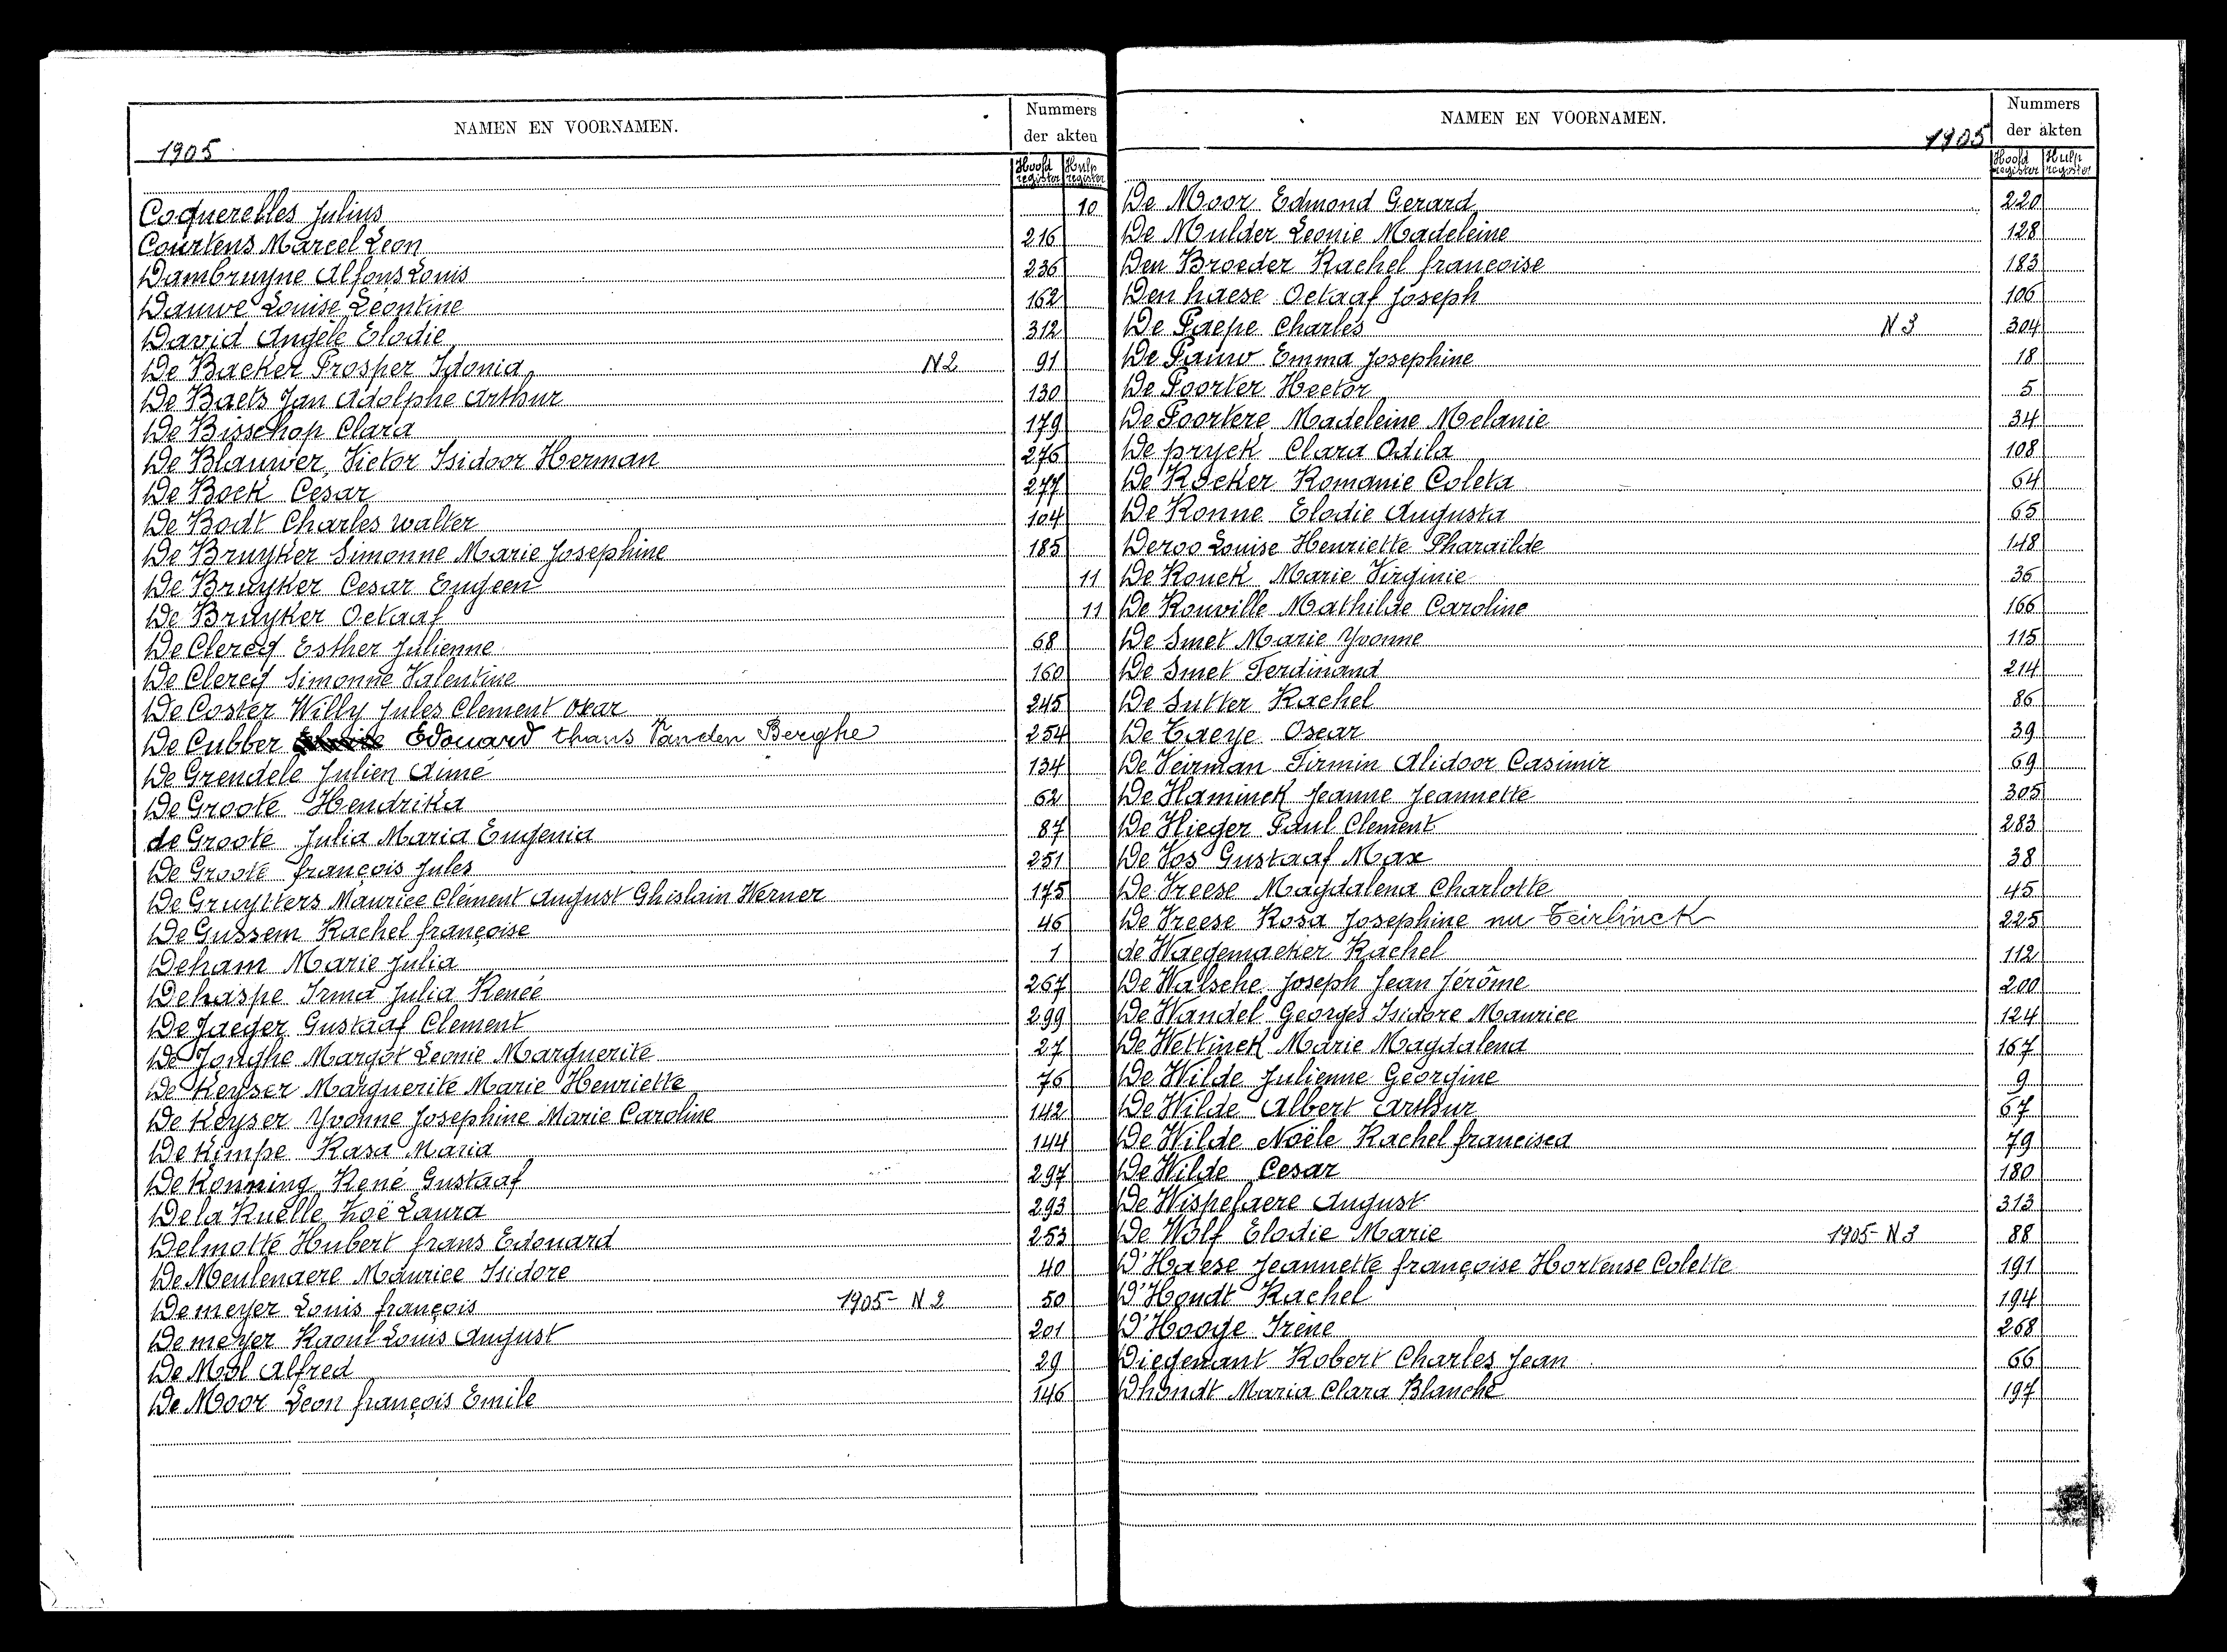 NAMEN EN VOORNAMEN.
Nummers
der akten
1905
Hoofd register
Hulp register
Coquerelles Julius 10
Courtens Marcel Leon 216
Dambruyne Alfons Louis 236
Dauwe Louise Leontine 162
David Angèle Elodie 312
De Backer Prosper Idonia N2 91
De Baets Jan Adolphe Arthur 130
De Bisschop Clara 179
De Blauwer, Victor Isidoor Herman 276
De Bock César 277
De Bodt Charles Walter 104
De Bruyker Simonne Marie Josephine 185
De Bruyker Cesar Eugeen 11
De Bruyker Octaaf 11
De Clercq Esther Julienne 68
De Clercq Simonne Valentine 160
De Coster Willy Jules Clement Oscar 245
De Cubber Edouard thans Vanden Berghe 254
De Grendele Julien Aimé 134
De Groote Hendrika 62
de Groote Julia Maria Eugenia 87
De Groote françois Jules 251
De Gruytters Maurice Clément August Ghislain Werner 175
De Gussem Rachel françoise 46
Deham Marie Julia 1
Dehaspe Irma Julia Renée 267
De Jaeger Gustaaf Clement 299
De Jonghe Margot Leonie Marguerite 27
De Keyser Marguerite Marie Henriette 76
De Keyser Yvonne Josephine Marie Caroline 142
De Kimpe Rasa Maria 144
De Konning René Gustaaf 297
De la Ruelle Zoë Laura 293
Delmotte Hubert frans Edouard 253
De Meulenaere Maurice Isidore 40
Demeyer Louis françois 1905- N2 50
Demeyer Raoul Louis August 201
De Mol Alfred 29
De Moor Leon françois Emile 146
NAMEN EN VOORNAMEN.
1905
Nummers
der akten
Hoofd register
Hulp register
De Moor Edmond Gerard 220
De Mulder Leonie Madeleine 128
Den Broeder Rachel francoise 183
Den haese Octaaf Joseph 106
De Paepe Charles N3 304
De Pauw Emma Josephine 18
De Poorter Hector 5
De Poortere Madeleine Melanie 34
De pryck Clara Odila 108
De Racker Romanie Coleta 64
De Ronne Elodie Augusta 65
Deroo Louise Henriette Pharaïlde 148
De Rouck Marie Virginie 36
De Rouville Mathilde Caroline 166
De Smet Marie Yvonne 115
De Smet Ferdinand 214
De Sutter Rachel 86
De Taeye Oscar 39
De Veirman Firmin Alidoor Casimir 69
De Vlaminck Jeanne Jeannette 305
De Vlieger Paul Clement 283
De Vos Gustaaf Max 38
De Vreese Magdalena Charlotte 45
De Vreese Rosa Josephine nu Teirlinck 225
de Waegemaeker Rachel 112
De Walsche Joseph Jean Jérôme 200
De Wandel Georges Isidore Maurice 124
De Wettinck Marie Magdalena 167
De Wilde Julienne Georgine 9
De Wilde Albert Arthur 67
De Wilde Noële Rachel francisca 79
De Wilde Cesar 180
De Wispelaere August 313
De Wolf Elodie Marie 1905- N3 88
D'Haese Jeannette françoise Hortense Colette 191
D'Hondt Rachel 194
D'Hooge Irene 268
Diegenant Robert Charles Jean 66
Dhondt Maria Clara Blanche 197